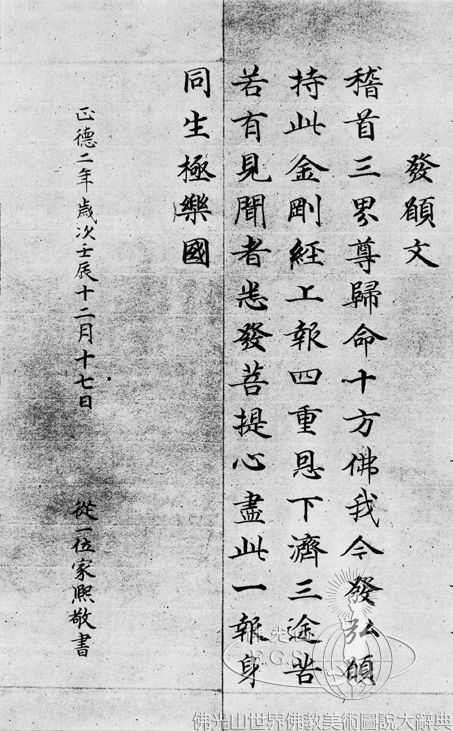 發願文
稽首三界尊歸命十方佛我今發弘願
持此金剛經上報四重恩下濟三途苦
若有見聞者悉發菩提心盡此一報身
同生極樂國
正德二年歲次壬辰十二月十七日
從一位家熈敬書
佛光山
F.G.S.
佛光山世界佛教美術圖說大辭典